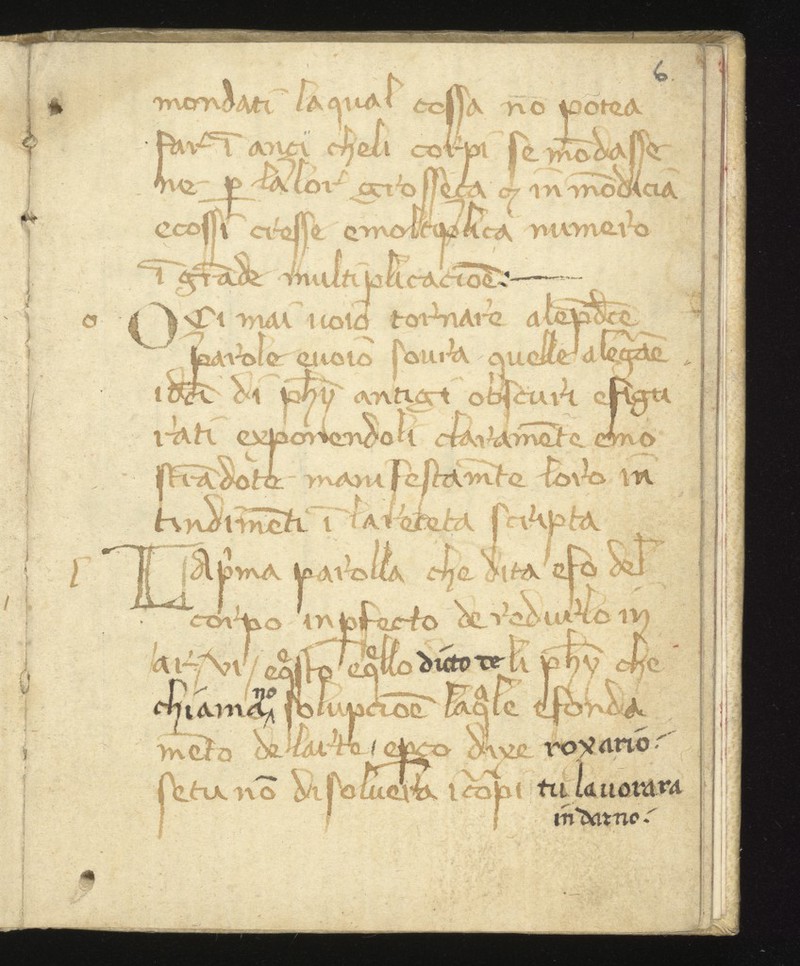 6
mondati laqual cossa nō pōtea
far ī anci cheli corpi se mōdasse
ne p̱ la lor grosseça ⁊ in mōdicia
ecossi cresse emoltiplica numero
ī grāde multiplicacioē:—
o OCi mai uoio tornare alep̄dc̄e
parole euoio soura quelle alegāe
idc̄ti di phỹ antigi obscuri efigu
rati exponendoli claramēte emo
strādote manifestamt̄e loro in
tindimēti ī lareteta scripta
l LApͥma parolla che dita efo del
corpo inp̱fecto de redurlo in
ar/vi/ eqͦsto eqͦllo dicto de li phỹ che
chiamano solupcioē laqᵃle efonda
mēto de larte/ ep̱co dixe roxario.
setu nō disoluera icōpi tu lauorara
in darno.